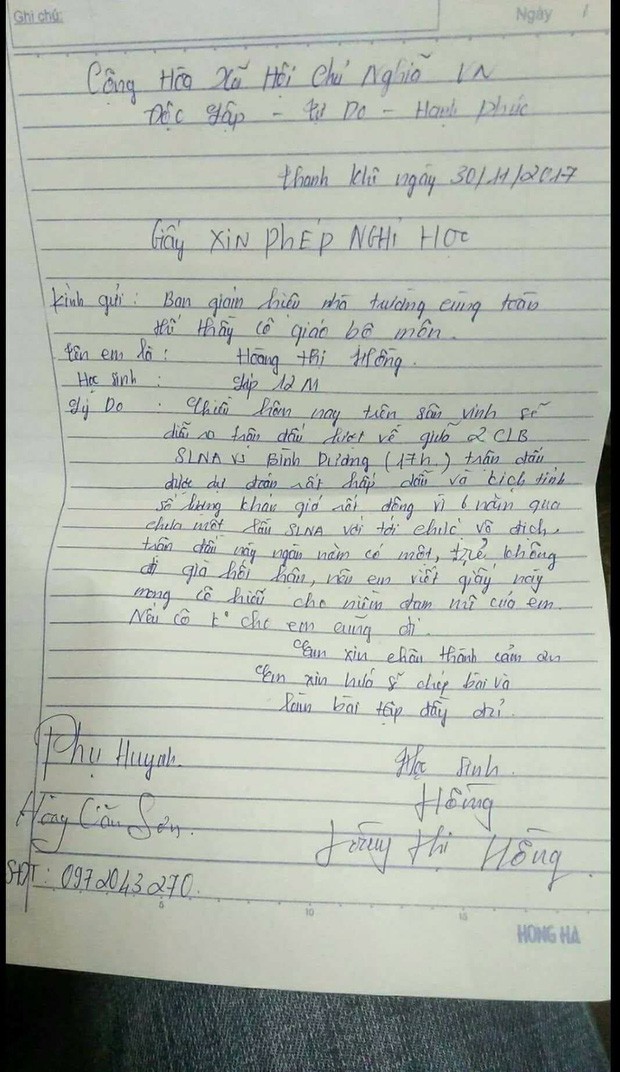 Ghi chú:
Ngày /
Cộng Hòa Xã Hội Chủ Nghĩa VN
Độc Lập - Tự Do - Hạnh Phúc
thanh khê ngày 30/11/2017
Giấy XIN PHÉP NGHỈ HỌC
Kính gửi: Ban giám hiệu nhà trường cùng toàn
thể thầy cô giáo bộ môn.
tên em là : Hoàng thị Hồng.
Học sinh : lớp 12M
Lý Do : Chiều hôm nay trên sân vinh sẽ
diễn ra trận đấu lượt về giữa 2 CLB
SLNA vs Bình Dương (17h) trận đấu
được dự đoán rất hấp dẫn và kịch tính
số lượng khán giả rất đông vì 6 năm qua
chưa một lần SLNA với tới chức vô địch,
trận đấu này ngàn năm có một, trẻ không
đi già hối hận, nên em viết giấy này
mong cô hiểu cho niềm đam mê của em.
Nếu cô k° cho em cũng đi.
Em xin chân thành cảm ơn
Em xin hứa sẽ chép bài và
làm bài tập đầy đủ.
Phụ Huynh.
Học sinh.
Hồng
Hoàng Văn Sơn.
Hoàng thị Hồng.
SĐT: 0972043270.
5 10 15
HONG HA